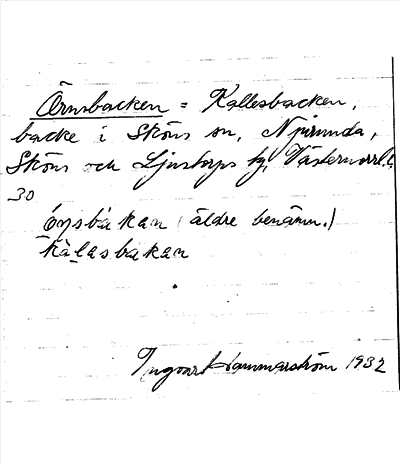 Örnsbacken = Kallesbacken,
backe i Sköns sn, Njurunda,
Sköns och Ljustorps tg, Västernorrl. l.
30
önsbakan (äldre benämn.)
kàlasbakan
Ingvar Hammarström 1932